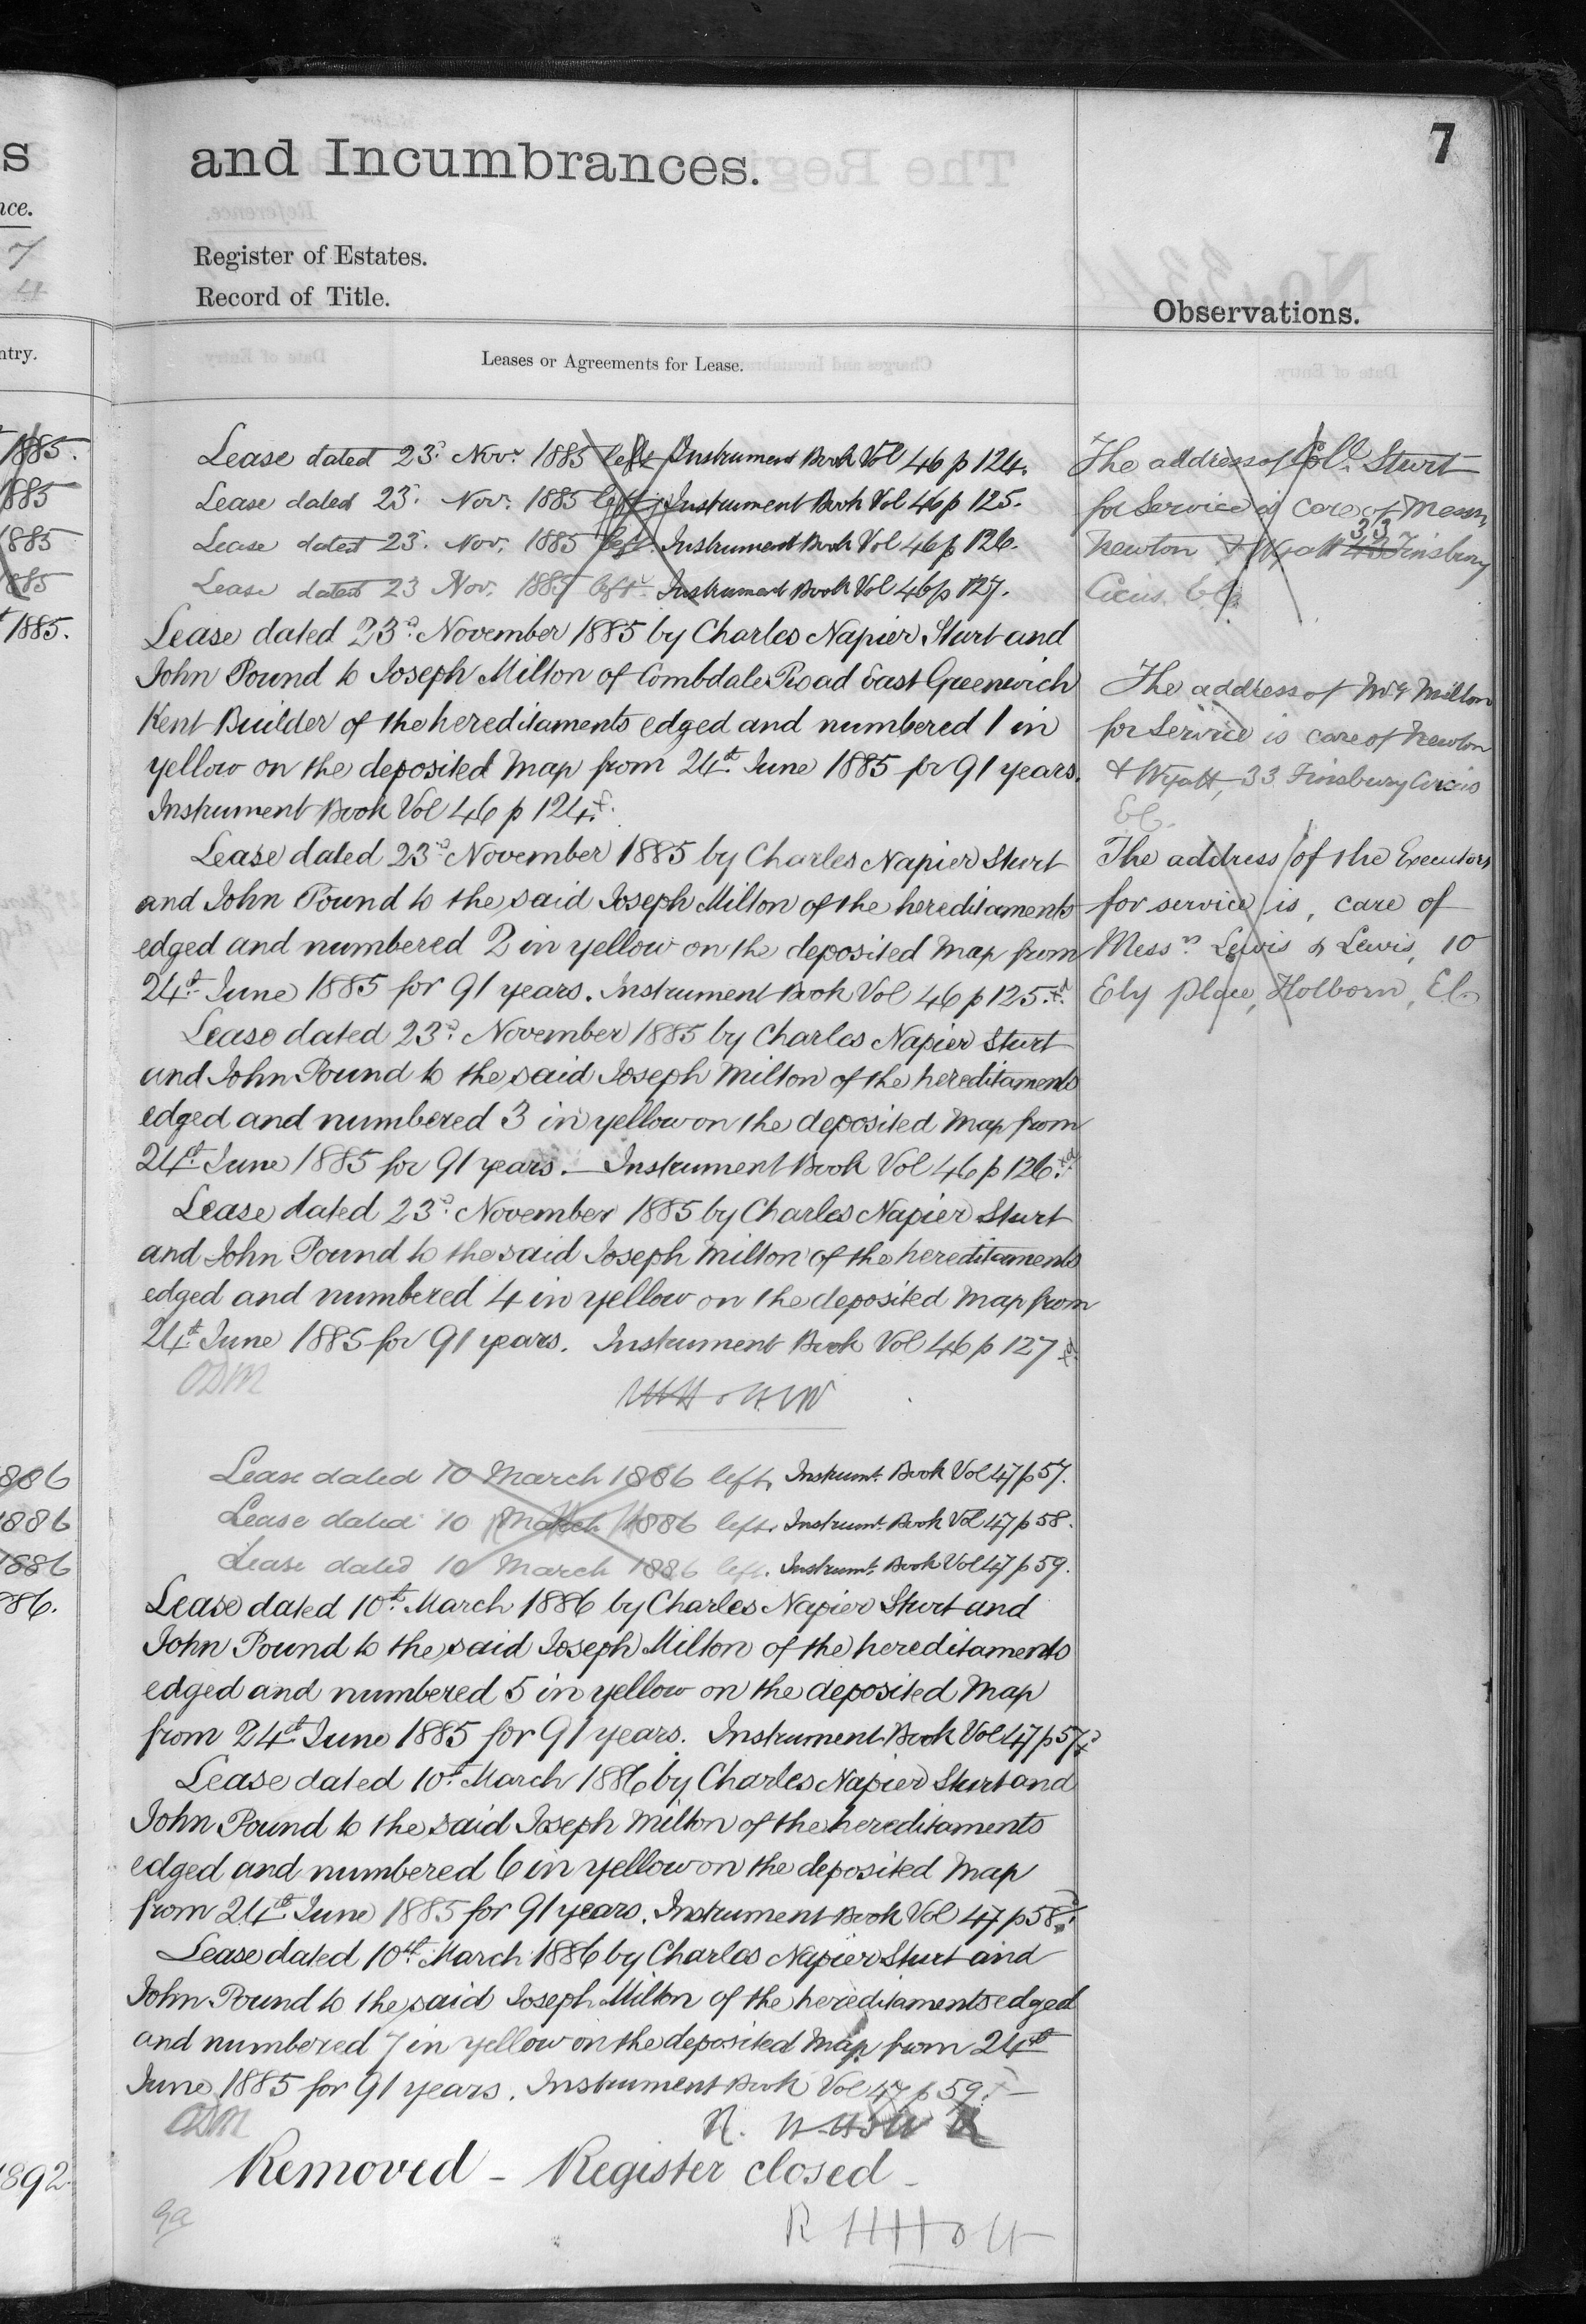 7
and Incumbrances.
Register of Estates.
Record of Title.
Observations.
Leases or Agreements for Lease.
Lease dated 23d. Novr. 1885 left Instrument Book Vol 46 p 124.
Lease dated 23d. Nov. 1885 left Instrument Book Vol 46 p 125.
Lease dated 23d. Nov. 1885 left. Instrument Book Vol 46 p 126.
Lease dated 23 Nov. 1885 left. Instrument Book Vol 46 p 127.
Lease dated 23d. November 1885 by Charles Napier Sturt and
John Pound to Joseph Milton of Combdale Road East Greenwich
Kent Builder of the hereditaments edged and numbered 1 in
yellow on the deposited Map from 24th June 1885 for 91 years.
Instrument Book Vol 46 p 124.
Lease dated 23d. November 1885 by Charles Napier Sturt
and John Pound to the said Joseph Milton of the hereditaments
edged and numbered 2 in yellow on the deposited Map from
24th June 1885 for 91 years. Instrument Book Vol 46 p 125.
Lease dated 23d. November 1885 by Charles Napier Sturt
and John Pound to the said Joseph Milton of the hereditaments
edged and numbered 3 in yellow on the deposited Map from
24th June 1885 for 91 years. — Instrument Book Vol 46 p 126.
Lease dated 23d. November 1885 by Charles Napier Sturt
and John Pound to the said Joseph Milton of the hereditaments
edged and numbered 4 in yellow on the deposited Map from
24th June 1885 for 91 years. Instrument Book Vol 46 p 127
Lease dated 10 March 1886 left, Instrumt. Book Vol 47 p 57.
Lease dated 10 March 1886 left. Instrumt. Book Vol 47 p 58.
Lease dated 10 March 1886 left. Instrumt. Book Vol 47 p 59.
Lease dated 10th. March 1886 by Charles Napier Sturt and
John Pound to the said Joseph Milton of the hereditaments
edged and numbered 5 in yellow on the deposited Map
from 24th June 1885 for 91 years. Instrument Book Vol 47 p 57
Lease dated 10th. March 1886 by Charles Napier Sturt and
John Pound to the said Joseph Milton of the hereditaments
edged and numbered 6 in yellow on the deposited Map
from 24th June 1885 for 91 years. Instrument Book Vol 47 p 58.
Lease dated 10th. March 1886 by Charles Napier Sturt and
John Pound to the said Joseph Milton of the hereditaments edged
and numbered 7 in yellow on the deposited Map from 24th
June 1885 for 91 years. Instrument Book Vol 47 p 59.
Removed - Register closed -
R H Holt
The address of Coll. Sturt
for Service is care of Messrs
33
Newton & Wyatt 43 Finsbury
Circus. E.C.
The address of Mr. Milton
for Service is care of Newton
& Wyatt, 33 Finsbury Circus
E.C.
The address of the Executors
for service is, care of
Messrs. Lewis & Lewis, 10
Ely Place, Holborn, E.C.
s
nce.
7
4
ntry.
1885.
1885
1885
1885
1885.
1886
1886
1886
1886.
1892.